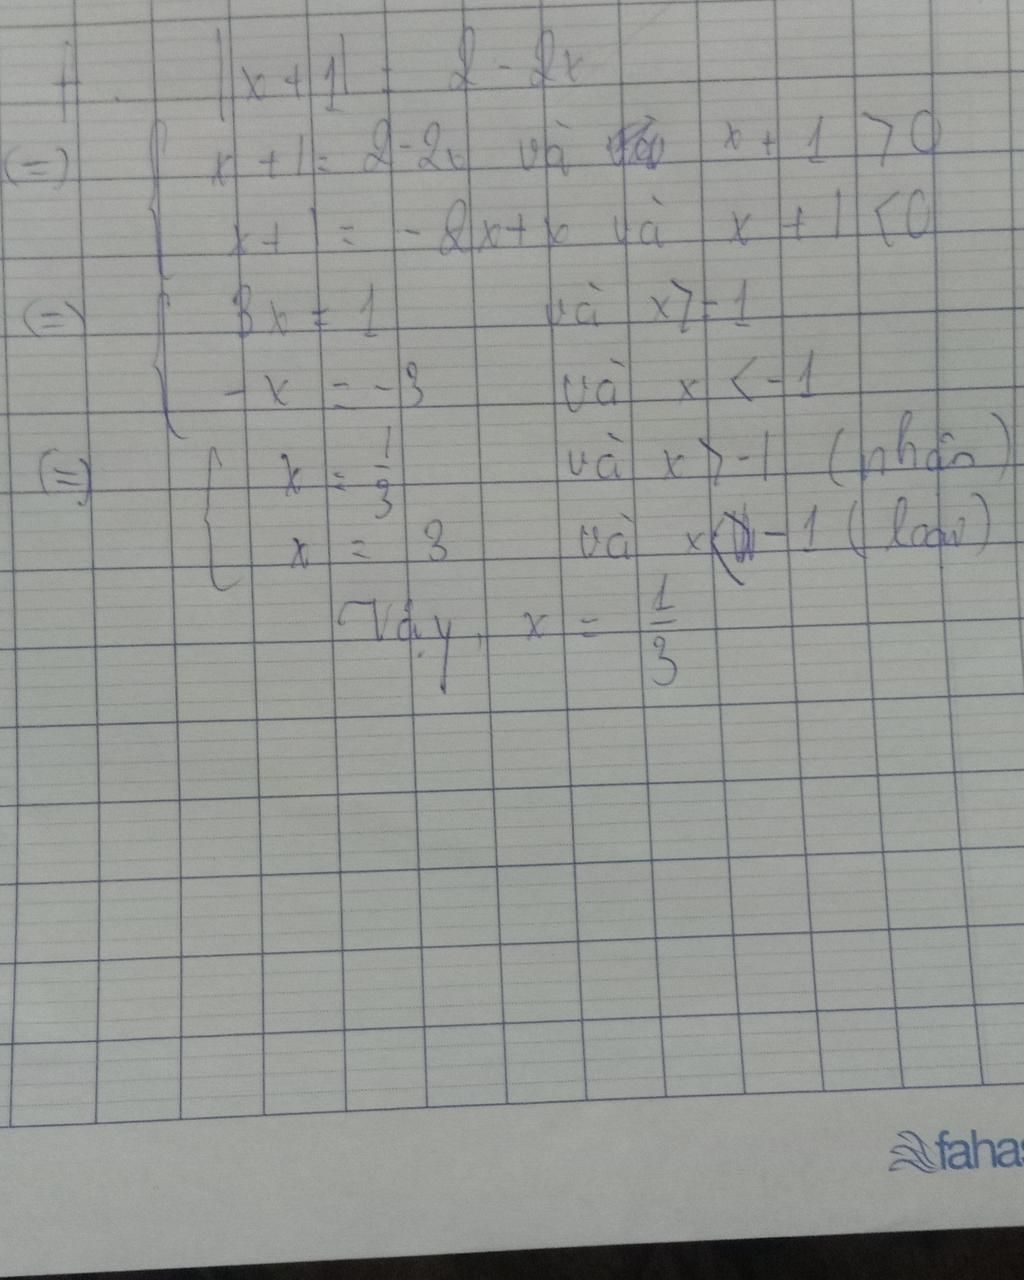 |x + 1| = 2 - 2x
(=) { x + 1 = 2 - 2x và x + 1 > 0
x + 1 = - 2x + x và x + 1 < 0
(=) { 3x = 1 và x > -1
- x = - 3 và x < -1
(=) { x = 1/3 và x > -1 (nhận)
x = 3 và x < -1 (loại)
Vậy x = 1/3
fahas